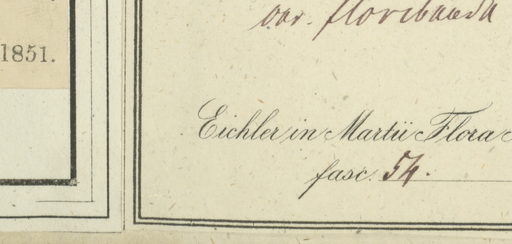 1851.
var. floribunda
Eichler in Martii Flora
fasc. 54.